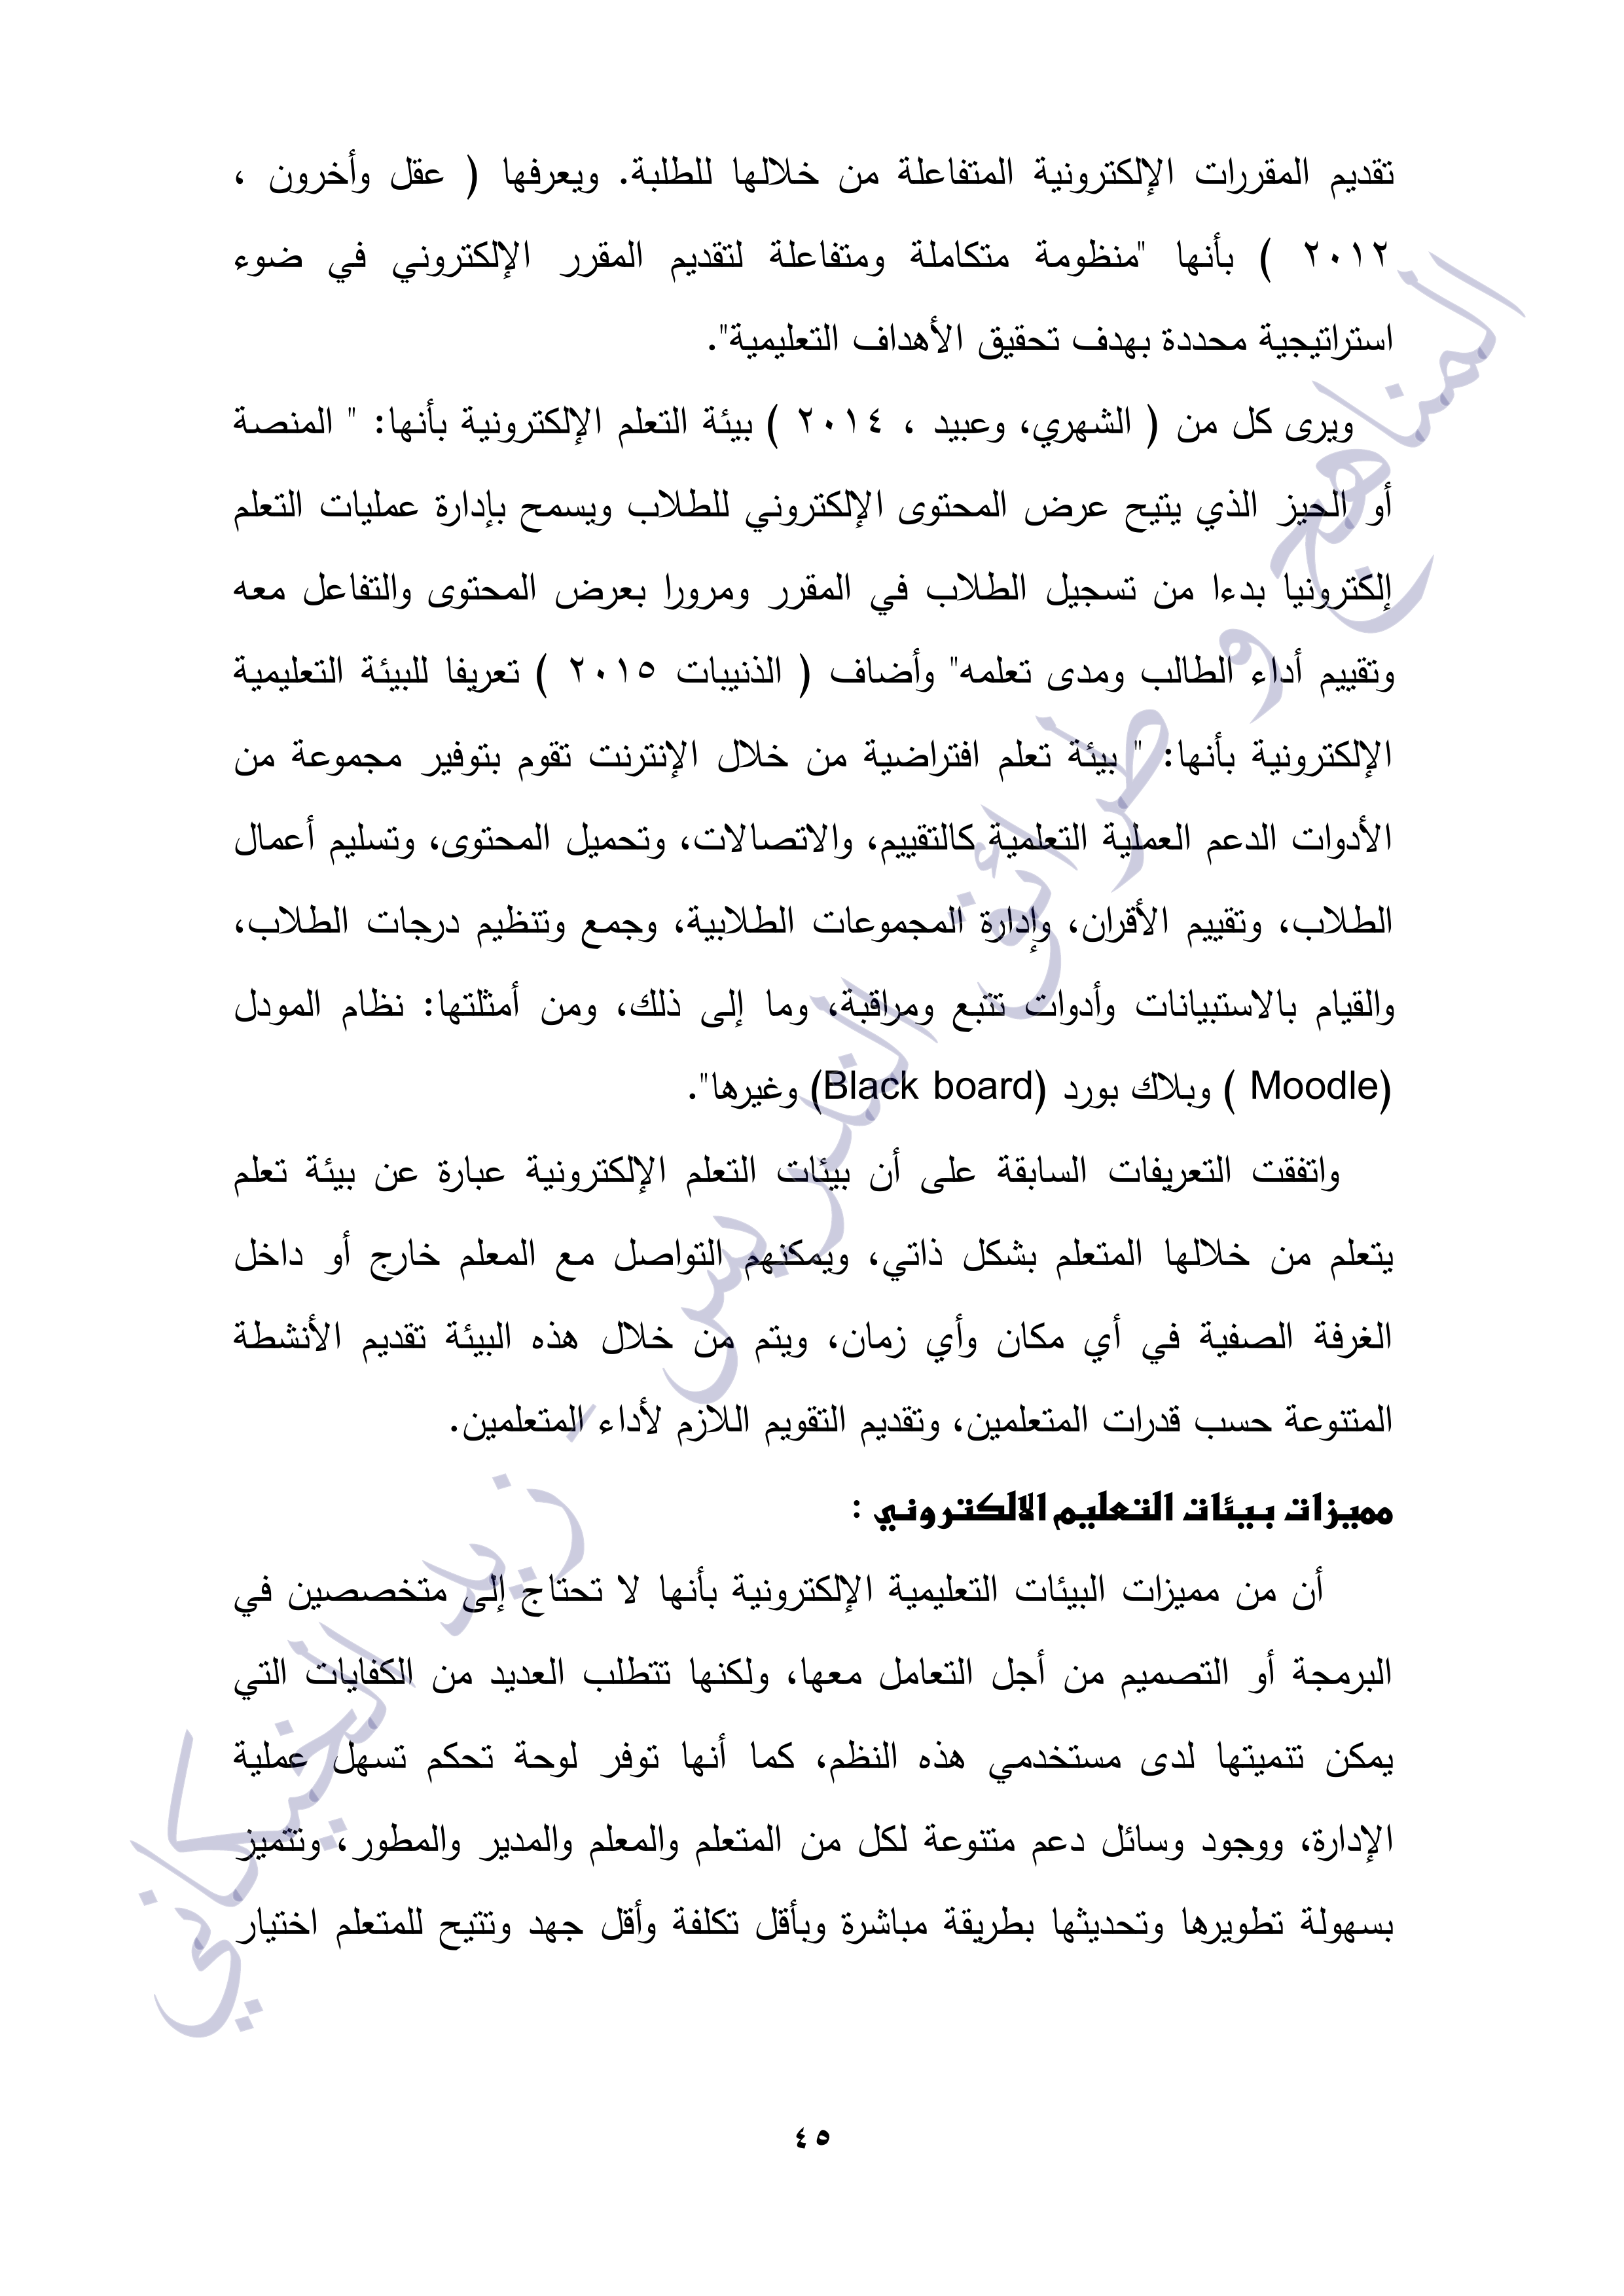 تقديم المقررات الإلكترونية المتفاعلة من خلالها للطلبة. ويعرفها ( عقل وأخرون ،
٢٠١٢ ) بأنها "منظومة متكاملة ومتفاعلة لتقديم المقرر الإلكتروني في ضوء
استراتيجية محددة بهدف تحقيق الأهداف التعليمية".
ويرى كل من ( الشهري، وعبيد ، ٢٠١٤ ) بيئة التعلم الإلكترونية بأنها: " المنصة
أو الحيز الذي يتيح عرض المحتوى الإلكتروني للطلاب ويسمح بإدارة عمليات التعلم
إلكترونيا بدءا من تسجيل الطلاب في المقرر ومرورا بعرض المحتوى والتفاعل معه
وتقييم أداء الطالب ومدى تعلمه" وأضاف ( الذنيبات ٢٠١٥ ) تعريفا للبيئة التعليمية
الإلكترونية بأنها: " بيئة تعلم افتراضية من خلال الإنترنت تقوم بتوفير مجموعة من
الأدوات الدعم العملية التعلمية كالتقييم، والاتصالات، وتحميل المحتوى، وتسليم أعمال
الطلاب، وتقييم الأقران، وإدارة المجموعات الطلابية، وجمع وتنظيم درجات الطلاب،
والقيام بالاستبيانات وأدوات تتبع ومراقبة، وما إلى ذلك، ومن أمثلتها: نظام المودل
(Moodle ) وبلاك بورد (Black board) وغيرها".
واتفقت التعريفات السابقة على أن بيئات التعلم الإلكترونية عبارة عن بيئة تعلم
يتعلم من خلالها المتعلم بشكل ذاتي، ويمكنهم التواصل مع المعلم خارج أو داخل
الغرفة الصفية في أي مكان وأي زمان، ويتم من خلال هذه البيئة تقديم الأنشطة
المتنوعة حسب قدرات المتعلمين، وتقديم التقويم اللازم لأداء المتعلمين.
مميزات بيئات التعليم الالكتروني :
أن من مميزات البيئات التعليمية الإلكترونية بأنها لا تحتاج إلى متخصصين في
البرمجة أو التصميم من أجل التعامل معها، ولكنها تتطلب العديد من الكفايات التي
يمكن تنميتها لدى مستخدمي هذه النظم، كما أنها توفر لوحة تحكم تسهل عملية
الإدارة، ووجود وسائل دعم متنوعة لكل من المتعلم والمعلم والمدير والمطور، وتتميز
بسهولة تطويرها وتحديثها بطريقة مباشرة وبأقل تكلفة وأقل جهد وتتيح للمتعلم اختيار
٤٥
المناهج و طرائق التدريس - زيد الخيكاني